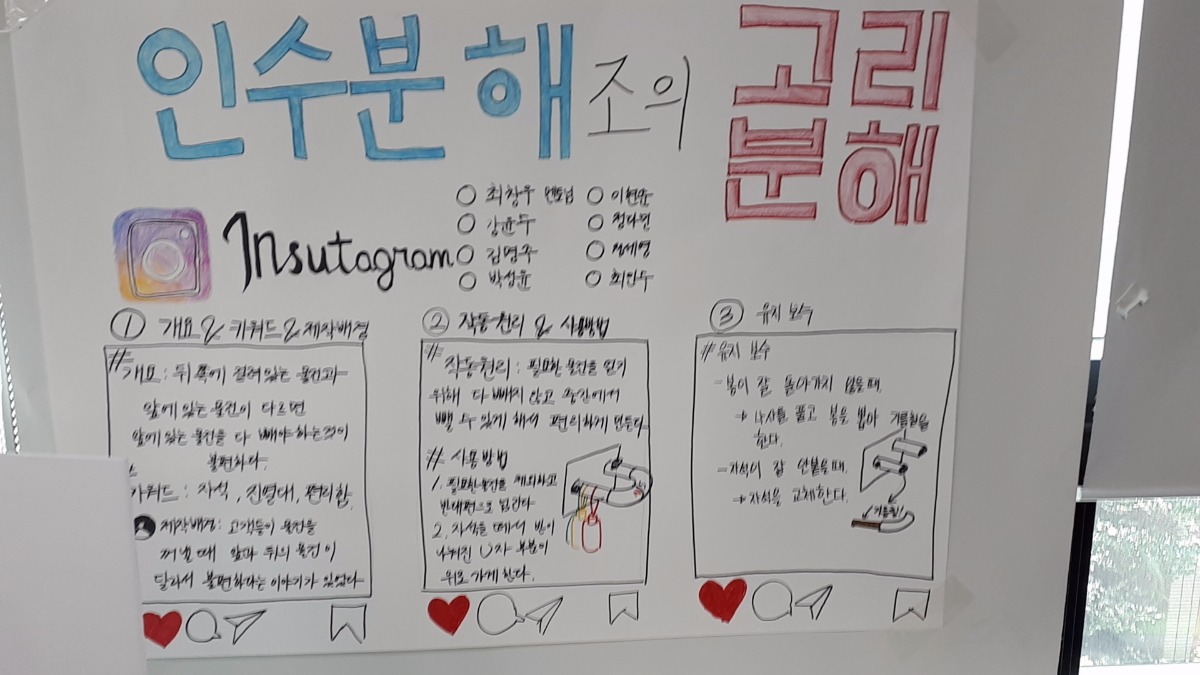 인수분해조의 고리
분해
Insutagram
○ 최창우 멘토님 ○ 이현윤
○ 강윤두 ○ 정다연
○ 김명주
○ 박성윤 ○ 최인두
① 개요 & 키워드 & 제작배경
# 개요 : 뒤 쪽에 걸려있는 물건과
앞에 있는 물건이 다르면
앞에 있는 물건을 다 빼야 하는것이
불편하다.
키워드 : 자석, 진열대, 편리함,
제작배경 : 고객들이 물건을
꺼낼 때 앞과 뒤의 물건이
달라서 불편하다는 이야기가 있었다
② 작동원리 & 사용방법
# 작동원리 : 필요한 물건을 얻기
위해 다 빼지 않고 중간에서
뺄 수 있게 해서 편리하게 만든다
# 사용방법
1. 필요한 물건을 제외하고
반대편으로 넘긴다
2. 자석을 떼서 반이
나눠진 U자 부분이
위로 가게 한다.
③ 유지 보수
# 유지 보수
- 봉이 잘 돌아가지 않을 때.
→ 나사를 풀고 봉을 뽑아 기름칠을
한다.
- 자석이 잘 안붙을때.
→ 자석을 교체한다.
기름칠!